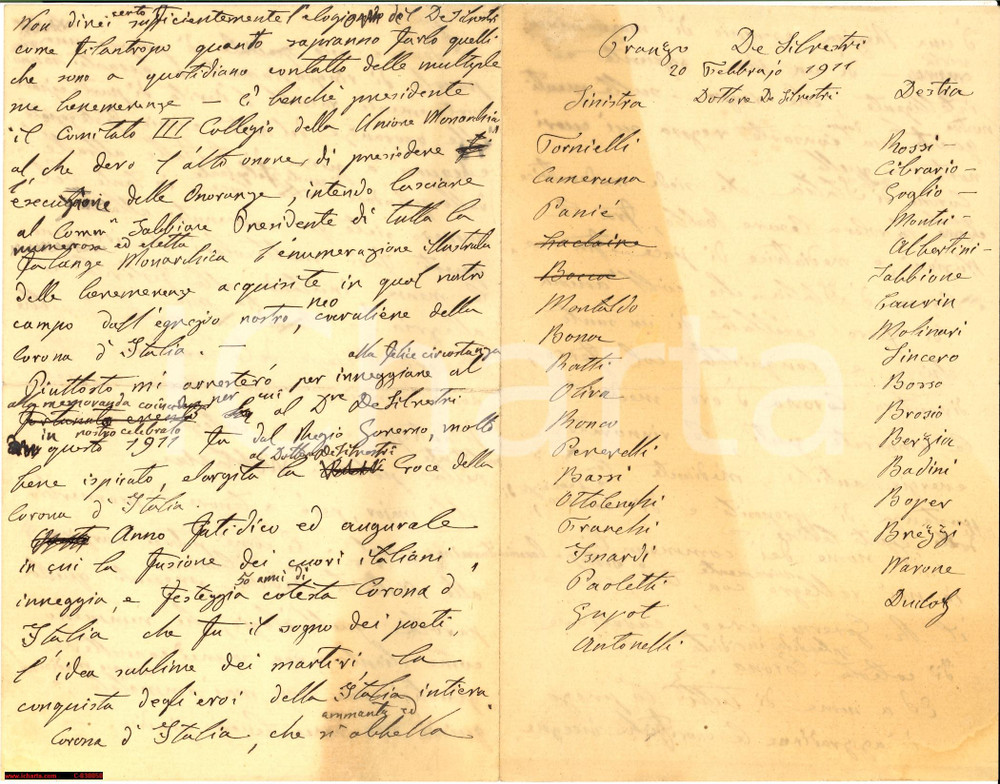 Non direi certo sufficientemente l'elogio del De Silvestri
come filantropo quanto sapranno farlo quelli
che sono a quotidiano contatto delle multiple
sue benemerenze — E benchè presidente
il Comitato III Collegio della Unione Monarchica
al che devo l'alto onore, di presiedere
l'esecuzione delle Onoranze, intendo lasciare
al Comm. Fabbione Presidente di tutta la
numerosa ed eletta
falange Monarchica l'enumerazione illustrata
delle benemerenze acquisite in quel nostro
campo dall'egregio nostro, neo cavaliere della
Corona d'Italia. —
alla felice circostanza
Piuttosto mi arresterò per inneggiare al
alla memoranda per cui al Dre De Silvestri
in nostro celebrato
questo 1911 fu dal Regio Governo, molto
al Dottor De Silvestri
bene ispirato, elargita la Croce della
Corona d'Italia.
Anno fatidico ed augurale
in cui la fusione dei cuori italiani,
50 anni di
inneggia, e festeggia cotesta Corona d'
Italia che fu il sogno dei poeti,
l'idea sublime dei martiri la
conquista degli eroi della Italia intiera
ammanta ed
Corona d'Italia, che si abbella
Pranzo De Silvestri
20 Febbrajo 1911
Sinistra Dottore De Silvestri Destra
Tornielli
Camerana
Panié
Laclaire
Bocca
Montaldo
Bona
Ratti
Oliva
Ronco
Peverelli
Bassi
Ottolenghi
Franchi
Isnardi
Paoletti
Guyot
Antonelli
Rossi -
Cibrario -
Goglio -
Montù -
Albertini -
Fabbione
Laurin
Molinari
Sincero
Borso
Brosio
Bergia
Badini
Boyer
Brezzi
Warone
icharta
www.icharta.com C-030050